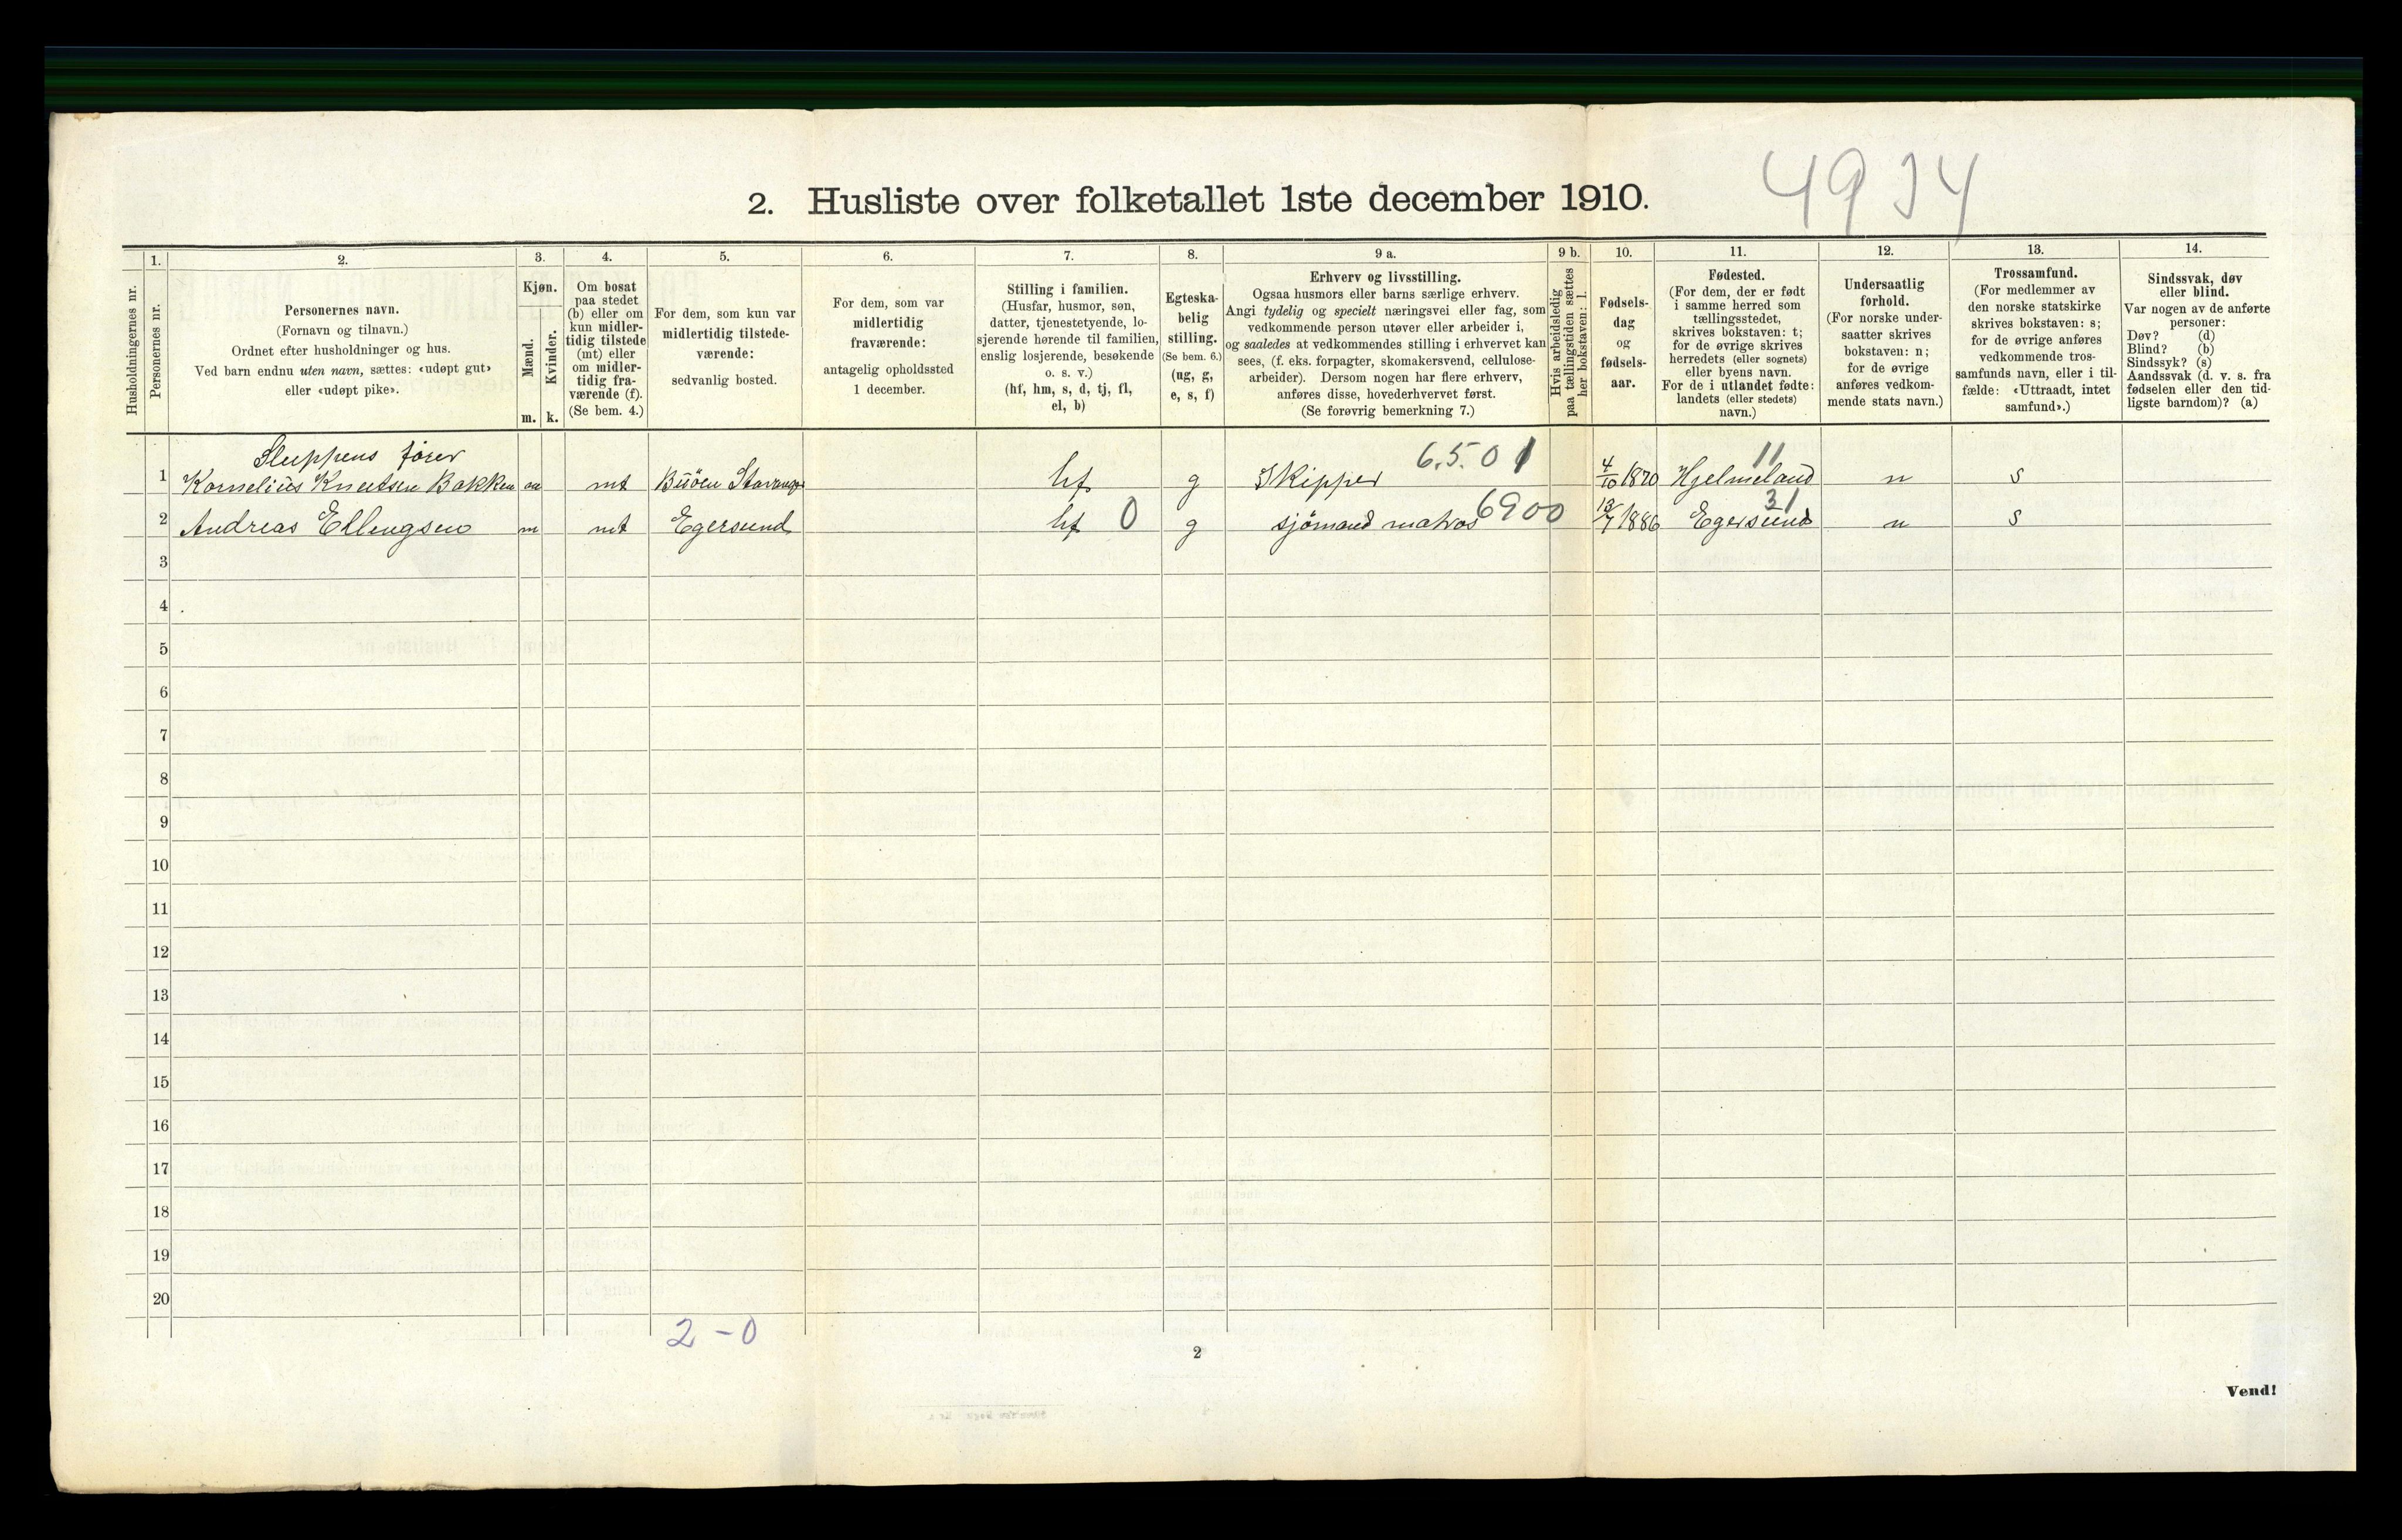 4934
2. Husliste over folketallet 1ste december 1910.
Husholdningernes nr.
1.
Personernes nr.
2.
Personernes navn.
(Fornavn og tilnavn.)
Ordnet efter husholdninger og hus.
Ved barn endnu uten navn, sættes: «udøpt gut»
eller «udøpt pike».
3.
Kjøn.
Mænd.
Kvinder.
m. k.
4.
Om bosat
paa stedet
(b) eller om
kun midler-
tidig tilstede
(mt) eller
om midler-
tidig fra-
værende (f).
(Se bem. 4.)
5.
For dem, som kun var
midlertidig tilstede-
værende:
sedvanlig bosted.
6.
For dem, som var
midlertidig
fraværende:
antagelig opholdssted
1 december.
7.
Stilling i familien.
(Husfar, husmor, søn,
datter, tjenestetyende, lo-
sjerende hørende til familien,
enslig losjerende, besøkende
o. s. v.)
(hf, hm, s, d, tj, fl,
el, b)
8.
Egteska-
belig
stilling.
(Se bem. 6.)
(ug, g,
e, s, f)
9 a.
Erhverv og livsstilling.
Ogsaa husmors eller barns særlige erhverv.
Angi tydelig og specielt næringsvei eller fag, som
vedkommende person utøver eller arbeider i,
og saaledes at vedkommendes stilling i erhvervet kan
sees, (f. eks. forpagter, skomakersvend, cellulose-
arbeider). Dersom nogen har flere erhverv,
anføres disse, hovederhvervet først.
(Se forøvrig bemerkning 7.)
9 b.
Hvis arbeidsledig
paa tællingstiden sættes
her bokstaven: l.
10.
Fødsels-
dag
og
fødsels-
aar.
11.
Fødested.
(For dem, der er født
i samme herred som
tællingsstedet,
skrives bokstaven: t;
for de øvrige skrives
herredets (eller sognets)
eller byens navn.
For de i utlandet fødte:
landets (eller stedets)
navn.)
12.
Undersaatlig
forhold.
(For norske under-
saatter skrives
bokstaven: n;
for de øvrige
anføres vedkom-
mende stats navn.)
13.
Trossamfund.
(For medlemmer av
den norske statskirke
skrives bokstaven: s;
for de øvrige anføres
vedkommende tros-
samfunds navn, eller i til-
fælde: «Uttraadt, intet
samfund».)
14.
Sindssvak, døv
eller blind.
Var nogen av de anførte
personer:
Døv? (d)
Blind? (b)
Sindssyk? (s)
Aandssvak (d. v. s. fra
fødselen eller den tid-
ligste barndom)? (a)
Sluppens fører 6.5.01 11
1 Kornelius Knutsen Bakken m mt Buöen Stavanger hf g Skipper 4/10 1870 Hjelmeland n s
2 Andreas Ellingsen m mt Egersund hf 0 g sjömand matros 6900 13/7 1886 Egersund 31 n s
3
4
5
6
7
8
9
10
11
12
13
14
15
16
17
18
19
20
2 - 0
2
Vend!